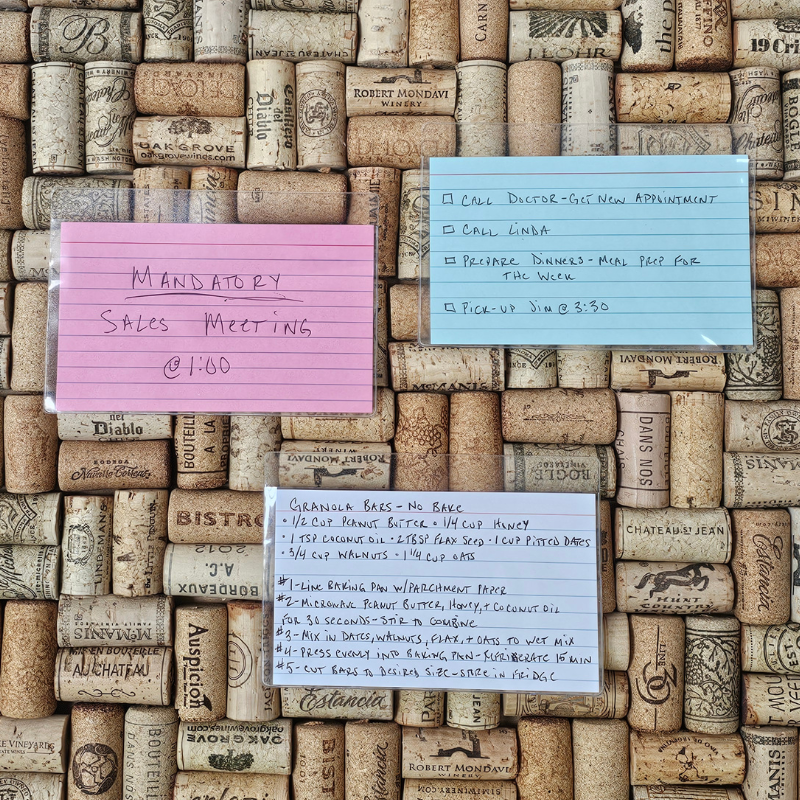 B
CHATEAU ST JEAN
LOHR
19 Cri
Chateau
ROBERT MONDAVI
WINERY
del
Diablo
OAK GROVE
oakgrovewines.com
MANDATORY
SALES MEETING
@ 1:00
☐ CALL DOCTOR - GET NEW APPOINTMENT
☐ CALL LINDA
☐ PREPARE DINNERS - MEAL PREP FOR
THE WEEK
☐ PICK-UP JIM @ 3:30
McMANIS
ROBERT MONDAVI
del
Diablo
BOUTEILLE
A LA
DANS NOS
MANIS
ROBERT MONDAVI
BOGLE
VINEYARDS
BISTRO
2012
A.C.
BORDEAUX
GRANOLA BARS - NO BAKE
• 1/2 CUP PEANUT BUTTER • 1/4 CUP HONEY
• 1 TSP COCONUT OIL • 2 TBSP FLAX SEED • 1 CUP PITTED DATES
• 3/4 CUP WALNUTS • 1 1/4 CUP OATS
#1 - LINE BAKING PAN W/PARCHMENT PAPER
#2 - MICROWAVE PEANUT BUTTER, HONEY, + COCONUT OIL
FOR 30 SECONDS - STIR TO COMBINE
#3 - MIX IN DATES, WALNUTS, FLAX, + OATS TO WET MIX
#4 - PRESS EVENLY INTO BAKING PAN - REFRIBERATE 15 MIN
#5 - CUT BARS TO DESIRED SIZE - STORE IN FRIDGE
CHATEAU ST JEAN
Estancia
McMANIS
MIS EN BOUTEILLE
AU CHATEAU
Auspicion
Estancia
JEAN
VINEYARDS
BOUTEILLE
OAK GROVE
oakgrovewines.com
BIST
Estancia
ROBERT MONDAVI
WINERY
SIMIWINERY.COM